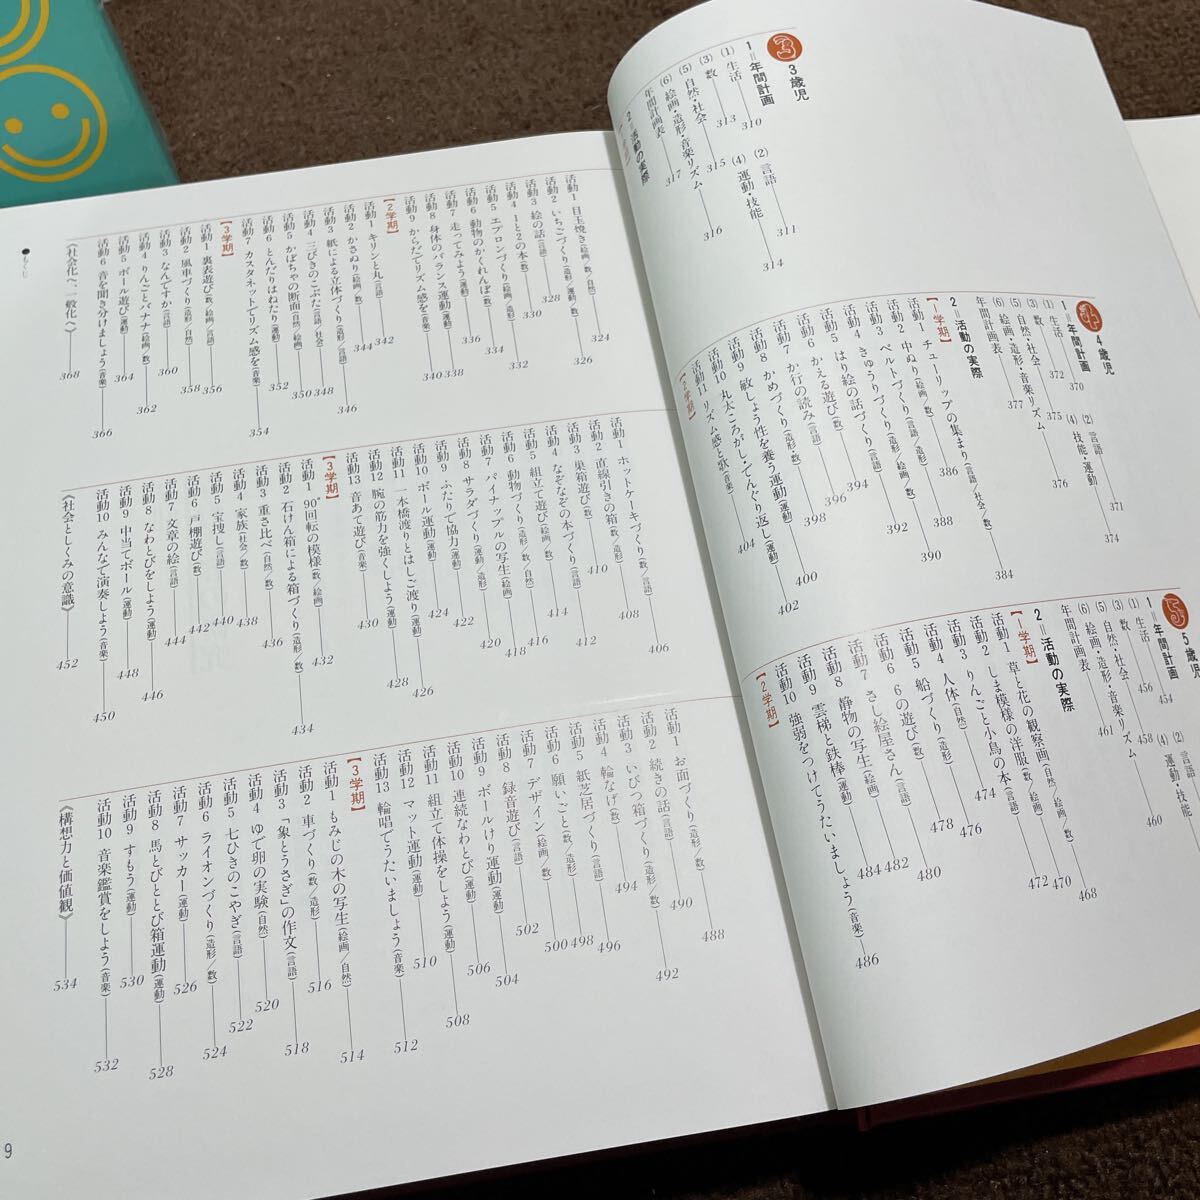 3 3歳児
1=年間計画
(1) 生活 310
(2) 言語 311
(3) 数 313
(4) 運動・技能 314
(5) 自然・社会 315
(6) 絵画・造形・音楽リズム 316
年間計画表 317
2=活動の実際
活動1 目玉焼き(絵画/自然) 324
活動2 いちごづくり(造形/数) 326
活動3 絵の話(言語) 328
活動4 1と2の本(数) 330
活動5 エプロンづくり(絵画/造形) 332
活動6 動物のかくれんぼ(数) 334
活動7 走ってみよう(運動) 336
活動8 身体のバランス運動(運動) 338
活動9 からだでリズム感を(音楽) 340
【2学期】
活動1 キリンと丸(言語) 342
活動2 かさぬり(絵画/数) 344
活動3 紙による立体づくり(造形/言語) 346
活動4 三びきのこぶた(言語/社会) 348
活動5 かぼちゃの断面(自然/絵画) 350
活動6 とんだりはねたり(運動) 352
活動7 カスタネットでリズム感を(音楽) 354
【3学期】
活動1 裏表遊び(数/絵画) 356
活動2 風車づくり(造形/自然) 358
活動3 なんですか(言語) 360
活動4 りんごとバナナ(絵画/数) 362
活動5 ボール遊び(運動) 364
活動6 音を聞き分けましょう(音楽) 366
《社会化へ、一般化へ》 368
4 4歳児
1=年間計画
(1) 生活 370
(2) 言語 371
(3) 数 372
(4) 技能・運動 374
(5) 自然・社会 375
(6) 絵画・造形・音楽リズム 376
年間計画表 377
2=活動の実際
【1学期】
活動1 チューリップの集まり(言語/社会/数) 384
活動2 中ぬり(絵画/数) 386
活動3 ベルトづくり(言語/造形) 388
活動4 きゅうりづくり(造形/絵画/数) 390
活動5 はり絵の話づくり(言語) 392
活動6 かえる遊び(数) 394
活動7 か行の読み(言語) 396
活動8 かめづくり(造形・数) 398
活動9 敏しょう性を養う運動(運動) 400
活動10 丸太ころがし・でんぐり返し(運動) 402
活動11 リズム感と歌(音楽) 404
【2学期】
活動1 ホットケーキづくり(数/言語) 406
活動2 直線引きの箱(数/造形) 408
活動3 巣箱遊び(数) 410
活動4 なぞなぞの本づくり(言語) 412
活動5 組立て遊び(絵画/数) 414
活動6 動物づくり(数/自然) 416
活動7 パイナップルの写生(絵画) 418
活動8 サラダづくり(運動/造形) 420
活動9 ふたりで協力(運動) 422
活動10 ボール運動(運動) 424
活動11 一本橋渡りとはしご渡り(運動) 426
活動12 腕の筋力を強くしよう(運動) 428
活動13 音あて遊び(音楽) 430
【3学期】
活動1 90°回転の模様(数/絵画) 432
活動2 石けん箱による箱づくり(造形/数) 434
活動3 重さ比べ(自然/数) 436
活動4 家族(社会/数) 438
活動5 宝捜し(言語) 440
活動6 戸棚遊び(数) 442
活動7 文章の絵(言語) 444
活動8 なわとびをしよう(運動) 446
活動9 中当てボール(運動) 448
活動10 みんなで演奏しよう(音楽) 450
《社会としくみの意識》 452
5 5歳児
1=年間計画
(1) 生活 454
(2) 言語
(3) 数 456
(4) 運動・技能
(5) 自然・社会 458
(6) 絵画・造形・音楽リズム 460
年間計画表 461
2=活動の実際
【1学期】
活動1 草と花の観察画(自然/絵画) 468
活動2 しま模様の洋服(数/絵画) 470
活動3 りんごと小鳥の本(言語) 472
活動4 人体(自然) 474
活動5 船づくり(造形) 476
活動6 6の遊び(数) 478
活動7 さし絵屋さん(言語) 480
活動8 静物の写生(絵画) 482
活動9 雲梯と鉄棒(運動) 484
活動10 強弱をつけてうたいましょう(音楽) 486
【2学期】
活動1 お面づくり(造形) 488
活動2 続きの話(言語) 490
活動3 いびつ箱づくり(造形/数) 492
活動4 輪なげ(数) 494
活動5 紙芝居づくり(言語) 496
活動6 願いごと(数/造形) 498
活動7 デザイン(絵画/数) 500
活動8 録音遊び(言語) 502
活動9 ボールけり運動(運動) 504
活動10 連続なわとび(運動) 506
活動11 組立て体操をしよう(運動) 508
活動12 マット運動(運動) 510
活動13 輪唱でうたいましょう(音楽) 512
【3学期】
活動1 もみじの木の写生(絵画/自然) 514
活動2 車づくり(数/造形) 516
活動3 「象とうさぎ」の作文(言語) 518
活動4 ゆで卵の実験(自然) 520
活動5 七ひきのこやぎ(言語) 522
活動6 ライオンづくり(造形/数) 524
活動7 サッカー(運動) 526
活動8 馬とびととび箱運動(運動) 528
活動9 すもう(運動) 530
活動10 音楽鑑賞をしよう(音楽) 532
《構想力と価値観》 534
●もくじ
9